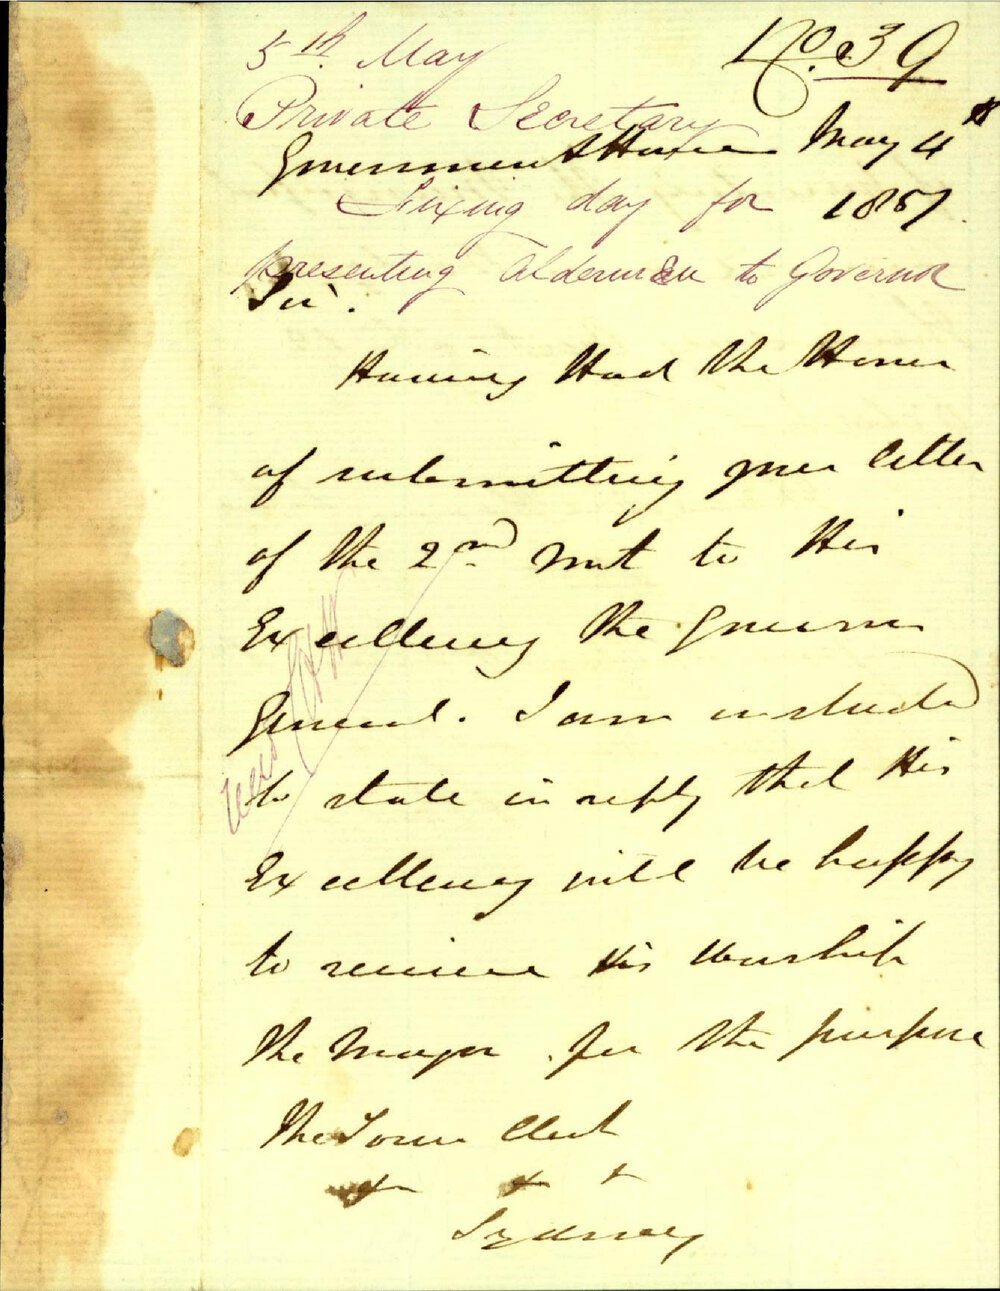 5th. May
No. 39
Private Secretary
Government House May 4th
Fixing day for
1857.
presenting Aldermen to Governor
Sir.
Having Had the Honor
of submitting your letter
of the 2nd inst to His
Excellency the Governor
General. I am instructed
to state in reply that His
Excellency will be happy
to receive His Worship
the Mayor for the purpose
The Town Clerk
Sydney